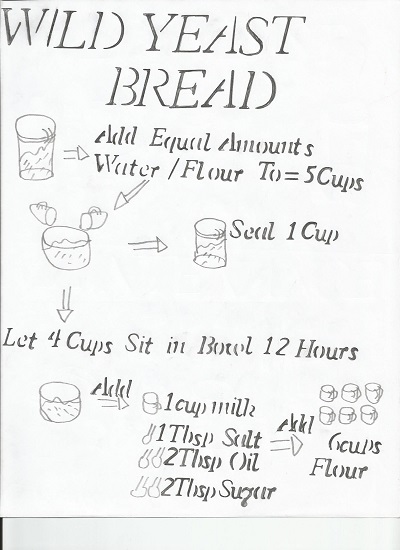 WILD YEAST
BREAD
Add Equal Amounts
Water / Flour To = 5 Cups
Seal 1 Cup
Let 4 Cups Sit in Bowl 12 Hours
Add
1 cup milk
1 Tbsp Salt
2 Tbsp Oil
2 Tbsp Sugar
Add
6 cups
Flour